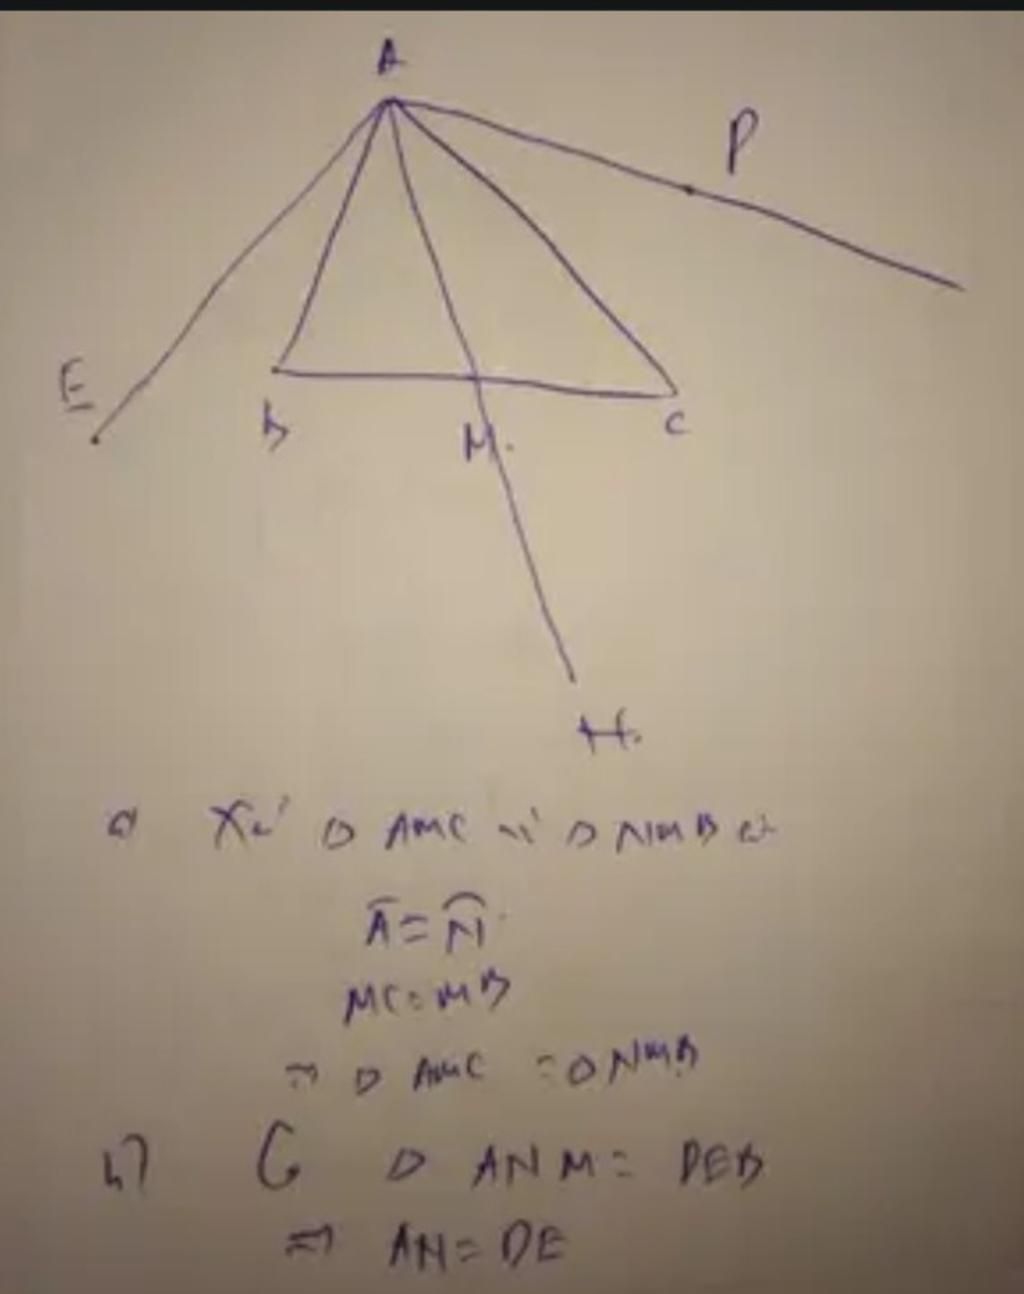 A
P
E
B
M.
C
H.
a) Xét Δ AMC và Δ NMB có
A = N
MC = MB
=> Δ AMC = Δ NMB
b) C Δ ANM = DEB
=> AN = DE